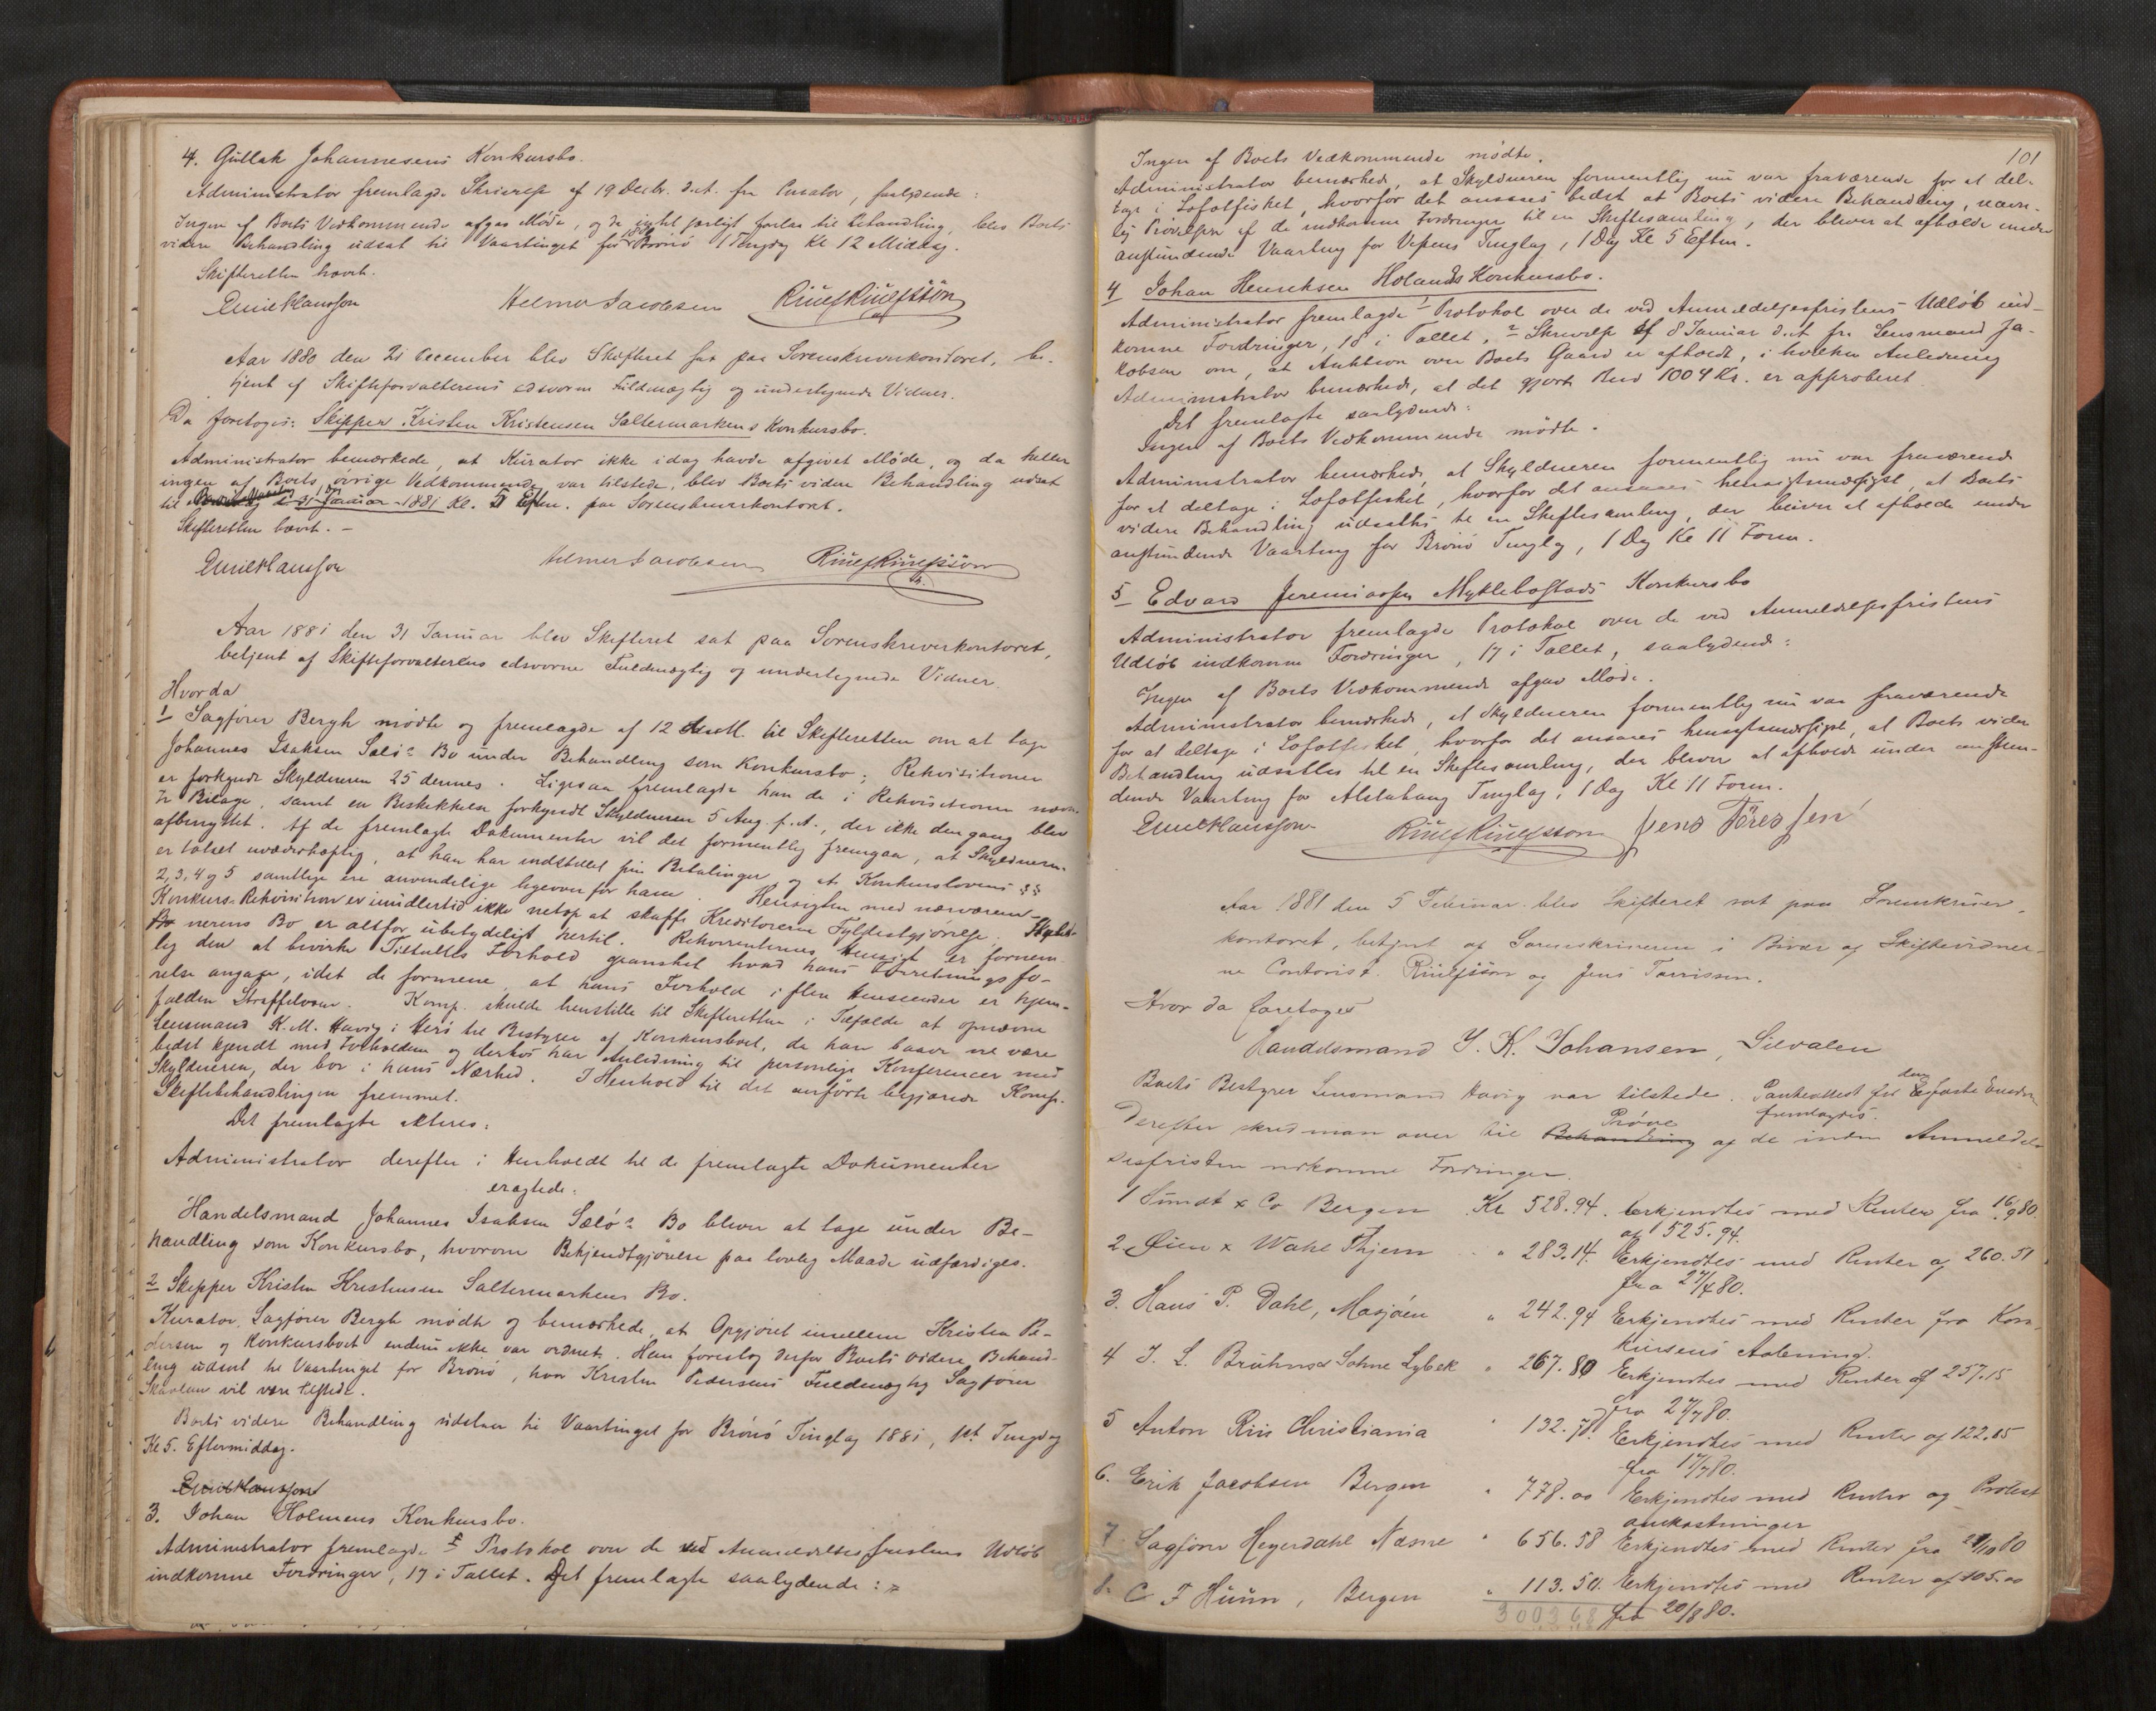 4. Gullak Johannesens Konkursbo.
Administrator fremlagde Skrivelse af 19 Decbr. d.A. fra Curator, saalydende:
Ingen af Boets Vedkommende afgav Møde, og da intet særligt forlaa til Behandling, blev Boets
videre Behandling udsat til Vaartinget for Brønø 1 Tingdag Kl 12 Middag.
Skifteretten hævet.
Emil Hansson Helmer Jacobsen Riulf Riulfssön
Aar 1880 den 21 December blev Skifteret sat paa Sorenskriverkontoret, be-
tjent af Skifteforvalterens edsvorne Fuldmægtig og undertegnede Vidner.
Da foretoges: Skipper Kristen Kristensen Saltermarkens Konkursbo.
Administrator bemærkede, at Kurator ikke idag havde afgivet Møde, og da heller
ingen af Boets øvrige Vedkommende var tilstede, blev Boets videre Behandling udsat
til 31 Januar 1881 Kl. 5 Eftm. paa Sorenskriverkontoret.
Skifteretten hævet. –
Emil Hansson Helmer Jacobsen Riulf Riulfssön
Aar 1881 den 31 Januar blev Skifteret sat paa Sorenskriverkontoret,
betjent af Skifteforvalterens edsvorne Fuldmægtig og undertegnede Vidner.
Hvor da
1 Sagfører Bergh mødte og fremlagde af 12 til Skifteretten om at tage
Johannes Isaksen Sælø's Bo under Behandling som Konkursbo; Rekvisitionen
er forkyndt Skyldneren 25 dennes. Ligesaa fremlagde han de i Rekvisitionen nævn-
te Bilage, samt en Beskikkelse forkyndt Skyldneren 5 Aug. f.A., der ikke dengang blev
afbenyttet. Af de fremlagte Dokumenter vil det formentlig fremgaa, at Skyldneren
er talset uvederhæftig, at han har indstillet sine Betalinger og at Konkurslovens §§
2, 3, 4 og 5 samtlige ere anvendelige ligeover for ham. Hensigten med nærværende
Konkurs-Rekvisition er imidlertid ikke netop at skaffe Kreditorerne Fyldestgjørelse; Skyld-
nerens Bo er altfor ubetydeligt hertil. Rekvirenternes Hensigt er fornem-
lig den at bevirke Tiltaltes Forhold gransket hvad hans Forretningsfø-
relse angaar, idet de formene, at hans Forhold i flere Henseender er hjem-
falden Straffeloven. Komp. skulde henstille til Skifteretten i Tilfælde at opnævne
Lensmand K. M. Havig i Herø til Bestyrer af Konkursboet, da han baade vil være
bedst kjendt med Forholdene og derhos har Anledning til personlige Konferencer med
Skyldneren, der bor i hans Nærhed. I Henhold til det anførte begjærede Komp.
Skiftebehandlingen fremmet.
Det fremlagte akteres:
Administrator derefter i Henhold til de fremlagte Dokumenter
eragtede:
Handelsmand Johannes Isaksen Sælø's Bo bliver at tage under Be-
handling som Konkursbo, hvorom Bekjendtgjørelse paa lovlig Maade udfærdiges.
2 Skipper Kristen Kristensen Saltermarkens Bo.
Kurator, Sagfører Bergh mødte og bemærkede, at Opgjøret imellem Kristen Pe-
dersen og Konkursboet endnu ikke var ordnet. Han foreslog derfor Boets videre Behand-
ling udsat til Vaartinget for Brønø, hvor Kristen Pedersens Fuldmægtig Sagfører
vil være tilstede.
Boets videre Behandling udstaar til Vaartinget for Brønø Tinglag 1881, 1st Tingdag
Kl 5. Eftermiddag.
Emil Hansson
3. Johan Holmens Konkursbo.
Administrator fremlagde 1 Protokol over de ved Anmeldelsesfristens Udløb
indkomne Fordringer, 17 i Tallet. Det fremlagte saalydende:
101
Ingen af Boets Vedkommende mødte.
Administrator bemærkede, at Skyldneren formentlig nu var fraværende for at del-
tage i Lofotfisket, hvorfor det ansaaes bedst at Boets videre Behandling, navn-
lig Prøvelsen af de indkomne Fordringer til en Skiftesamling, der bliver at afholde under
anstundende Vaarting for Vefsens Tinglag, 1 Dag Kl 5 Eftm.
4 Johan Henriksen Holands Konkursbo.
Administrator fremlagde 1 Protokol over de ved Anmeldelsesfristens Udløb ind-
komne Fordringer, 18 i Tallet, 2 Skrivelse af 8 Januar d.A. fra Lensmand Ja-
kobsen om, at Auktion over Boets Gaard er afholdt, i hvilken Anledning
Administrator bemærkede, at det gjorte Bud 1004 Kr. er approberet.
Det fremlagte saalydende:
Ingen af Boets Vedkommende mødte.
Administrator bemærkede, at Skyldneren formentlig nu var fraværende
for at deltage i Lofotfisket, hvorfor det ansaaes hensigtsmæssigst, at Boets
videre Behandling udsattes til en Skiftesamling, der bliver at afholde under
anstundende Vaarting for Brønø Tinglag, 1 Dag Kl 11 Form.
5 Edvard Jeremiassen Myklebostads Konkursbo
Administrator fremlagde Protokol over de ved Anmeldelsesfristens
Udløb indkomne Fordringer, 17 i Tallet, saalydende:
Ingen af Boets Vedkommende afgav Møde.
Administrator bemærkede, at Skyldneren formentlig nu var fraværende
for at deltage i Lofotfisket, hvorfor det ansaaes hensigtsmæssigst, at Boets videre
Behandling udsattes til en Skiftesamling, der bliver at afholde under anstun-
dende Vaarting for Alstahaug Tinglag, 1 Dag Kl 11 Form.
Emil Hansson Riulf Riulfssön Jens Töresen
Aar 1881 den 5 Februar blev Skifteret sat paa Sorenskriver-
kontoret, betjent af Sorenskriveren i og Skiftevidner-
ne Contorist Riulfsøn og Jens Tørrissen.
Hvor da foretoges
Handelsmand J. K. Johansen, Silvalen
Boets Bestyrer Lensmand Havig var tilstede. Panteattest for den faste Eiendom
fremlagdes.
Derefter skred man over til Behandling Prøve af de inden Anmeldel-
sesfristen indkomne Fordringer.
1 Sundt & Co Bergen Kr 528.94. Erkjendtes med Renter fra 16/9 80.
af 525.94.
2 Øien & Wahl Thjem " 283.14. Erkjendtes med Renter af 260.51
fra 27/7 80.
3. Hans P. Dahl, Mosjøen " 242.94 Erkjendtes med Renter fra Kon-
kursens Aabning.
4 J. L. Bruhns Søhne Lybek " 267.80 Erkjendtes med Renter af 257.15
fra 27/7 80.
5 Anton Riis Christiania " 132.70. Erkjendtes med Renter af 122.05
fra 17/7 80.
6. Erik Jacobsen Bergen " 778.00 Erkjendtes med Renter og Protest
omkostninger
7. Sagfører Heyerdahl Næsne " 656.58 Erkjendtes med Renter fra 29/10 80
8. C F Huun, Bergen " 113.50. Erkjendtes med Renter af 105.00
3003 68 fra 20/8 80.